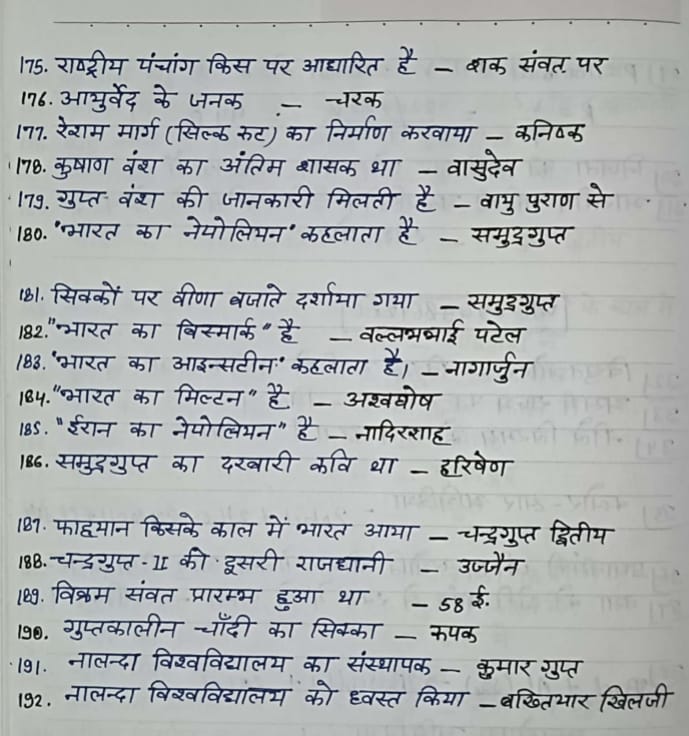 175. राष्ट्रीय पंचांग किस पर आधारित है – शक संवत पर
176. आयुर्वेद के जनक – चरक
177. रेशम मार्ग (सिल्क रूट) का निर्माण करवाया – कनिष्क
178. कुषाण वंश का अंतिम शासक था – वासुदेव
179. गुप्त वंश की जानकारी मिलती है – वायु पुराण से
180. "भारत का नेपोलियन" कहलाता है – समुद्रगुप्त
181. सिक्कों पर वीणा बजाते दर्शाया गया – समुद्रगुप्त
182. "भारत का बिस्मार्क" है – वल्लभभाई पटेल
183. "भारत का आइन्सटीन" कहलाता है, – नागार्जुन
184. "भारत का मिल्टन" है – अश्वघोष
185. "ईरान का नेपोलियन" है – नादिरशाह
186. समुद्रगुप्त का दरबारी कवि था – हरिषेण
187. फाह्यान किसके काल में भारत आया – चन्द्रगुप्त द्वितीय
188. चन्द्रगुप्त-II की दूसरी राजधानी – उज्जैन
189. विक्रम संवत प्रारम्भ हुआ था – 58 ई.
190. गुप्तकालीन चाँदी का सिक्का – रूपक
191. नालन्दा विश्वविद्यालय का संस्थापक – कुमार गुप्त
192. नालन्दा विश्वविद्यालय को ध्वस्त किया – बख्तियार खिलजी